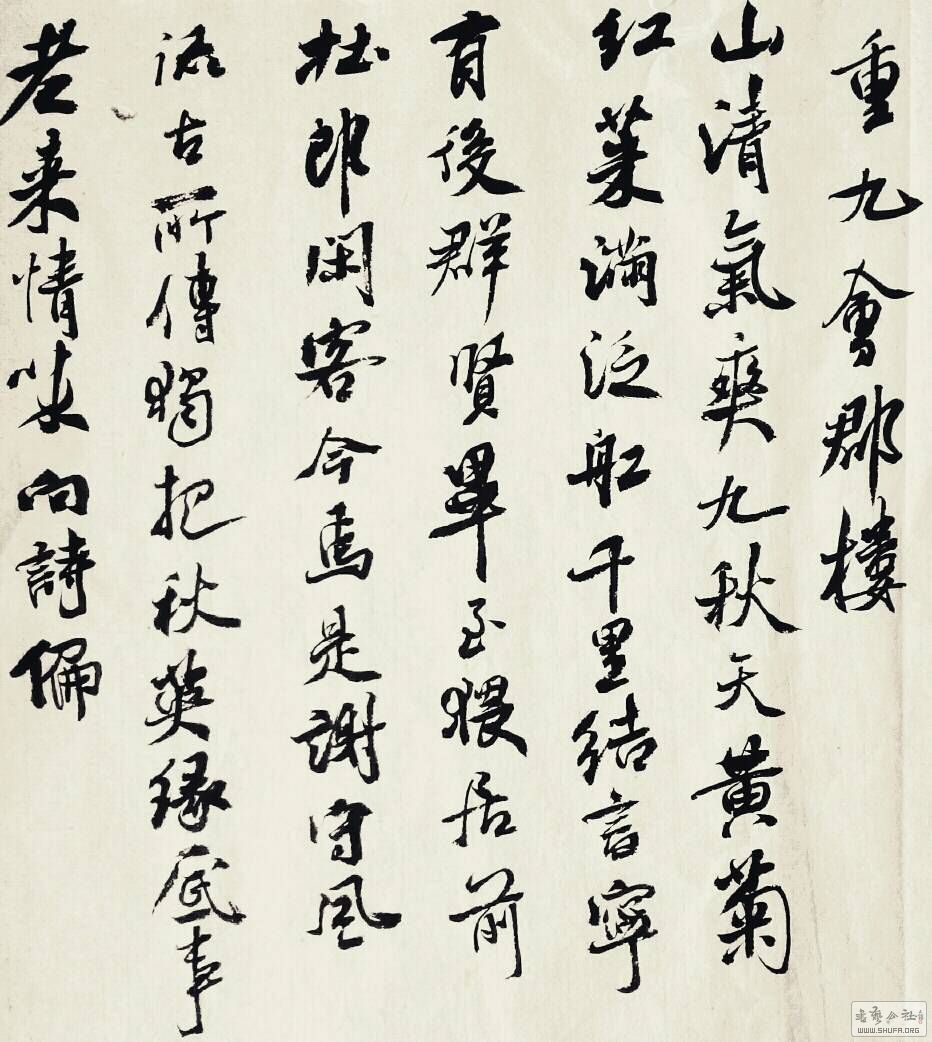 重九會郡樓
山清氣爽九秋天黄菊
紅茱滿泛舡千里結言寧
有後群賢畢至猥居前
杜郎閑客今焉是謝守風
流古所傳獨把秋英緣底事
老来情味向詩偏
書藝公社
WWW.SHUFA.ORG